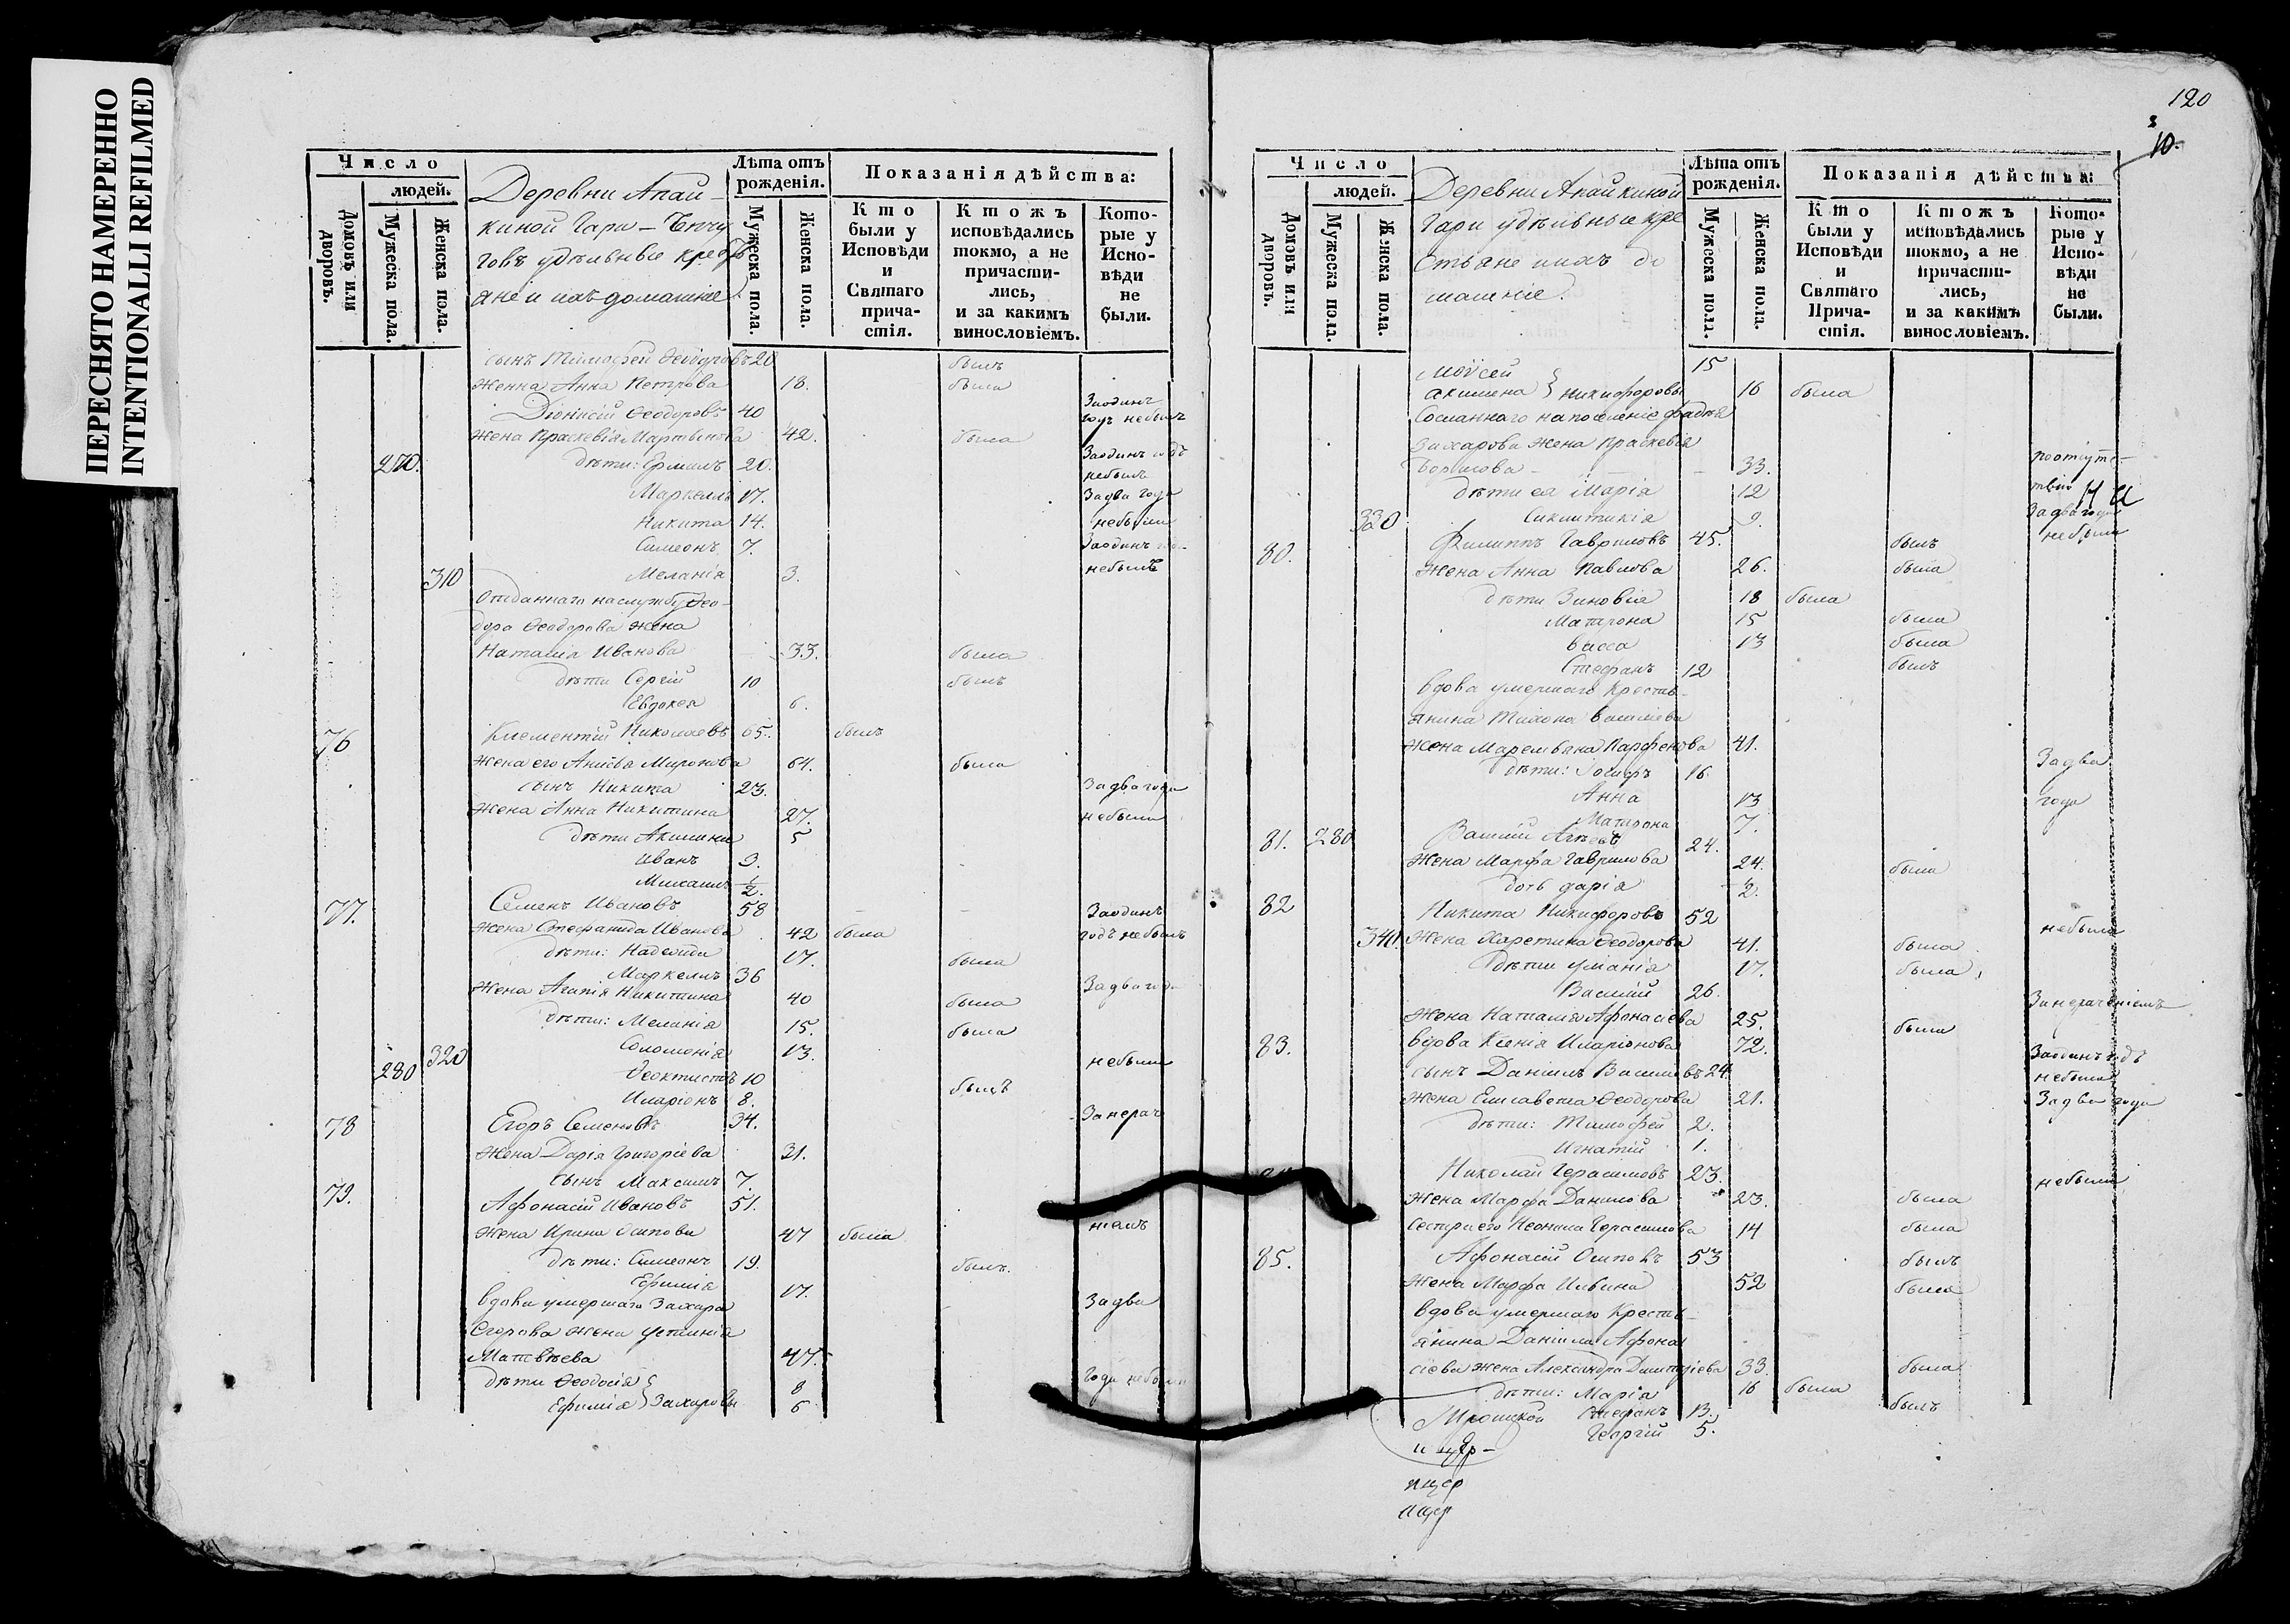 ПЕРЕСНЯТО НАМЕРЕННО
INTENTIONALLI REFILMED
Число
людей.
Домовъ или дворовъ.
Мужеска пола.
Женска пола.
Деревни Апай-
киной Гари –
говъ удѣльные крестъ
яне и ихъ домашніе
Лѣта отъ рожденія.
Мужеска пола.
Женска пола.
Показанія дѣйства:
Кто были у Исповѣди и Святаго причастія.
Ктожъ исповѣдались токмо, а не причастились, и за какимъ винословіемъ.
Которые у Исповѣди не были.
сынъ Тимофей Ѳеодоровъ 20 былъ
женна Анна Петрова 18. была
Діонисій Ѳеодоровъ 40 Заодинъ годъ небылъ
жена Праскевія Мартынова 42. была
270. дѣти: Ермилъ 20. Заодинъ годъ небылъ
Маркеллъ 17. Задва года
Никита 14. небыли
Симеонъ 7. Заодинъ
310 Меланія 3. небылъ
Отданнаго наслужбу Ѳео-
дора Ѳеодорова жена
Наталія Иванова 33. была
дѣти Сергій 10 былъ
Евдокея 6.
76 Клементій Николаевъ 65. былъ
жена его Анисья Миронова 64. была
сынъ Никита 23. Задва года
жена Анна Никитина 27. небыли
дѣти Акилина 5
Иванъ 3.
Михаилъ 1/2.
77. Семенъ Ивановъ 58 Заодинъ
жена Стефанида Иванова 42 была годъ небылъ
дѣти: Надежда 17. была
Маркеллъ 36 Задва года
жена Агапія Никитина 40 была
дѣти: Меланія 15. была
320 Соломонія 13. небыли
280 Ѳеоктистъ 10 былъ
Иларіонъ 8.
78 Егоръ Семеновъ 34. Занерач
жена Дарія Григоріева 31.
сынъ Максимъ 7.
79. Афонасій Ивановъ 51.
жена Ирина Осипова 47 была ніемъ
дѣти: Симеонъ 19. былъ.
Ефимія 17.
вдова умершаго Захара Задва
Егорова жена Устинія
Матвѣева 47.
дѣти Ѳеодосія 8 года небыли
Ефимія } Захаровы 6
120
10.
Число
людей.
Домовъ или дворовъ.
Мужеска пола.
Женска пола.
Деревни Апайкиной
Гари удѣльные кре
стьяне ихъ до
машніе.
Лѣта отъ рожденія.
Мужеска пола.
Женска пола.
Показанія дѣйства:
Кто были у Исповѣди и Святаго Причастія.
Ктожъ исповѣдались токмо, а не причастились, и за какимъ винословіемъ.
Которые у Исповѣди не были.
Моѵсей 15
Акилина } Никифоровы 16 была
Сосланнаго на поселеніе Фадѣя
Захарова жена Праскевія
Борисова 33. поотсутс-
дѣти ея Марія 12 твію
320 Синклитикія 9. Задвагода
80. Филиппъ Гавриловъ 45. былъ небыли
жена Анна Павлова 26. была
дѣти Зиновія 18 была
Матрона 15 была
Васса 13 была
Стефанъ 12 былъ
вдова умершаго кресть-
янина Тихона Василіева
жена Маремьяна Парфенова 41.
дѣти: Іосифъ 16. Задва
Анна 13 года
Матрона 7.
81. 280 Василій Агѣевъ 24.
жена Марфа Гаврилова 24. была
дочь Дарія 2.
82 Никита Никифоровъ 52 небыли
340. жена Харетина Ѳеодорова 41. была
дѣти Уліанія 17. была
Василій 26. Занераченіемъ
жена Наталія Афонасіева 25. была
83. вдова Ксенія Иларіонова 72. Заодинъ годъ
сынъ Даніилъ Васильевъ 24. небыли
жена Елисавета Ѳеодорова 21. Задва года
дѣти: Тимофей 2.
Игнатій 1.
Николай Герасимовъ 23. небыли
жена Марфа Данилова 23. была
сестра его Неонила Герасимова 14 была
85. Афонасій Осиповъ 53 былъ
жена Марфа Ильина 52 была
вдова умершаго кресть-
янина Даніила Афона
сіева жена Александра Димитріева 33 была
дѣти: Марія 16 была
Стефанъ 13. былъ
Георгій 5.